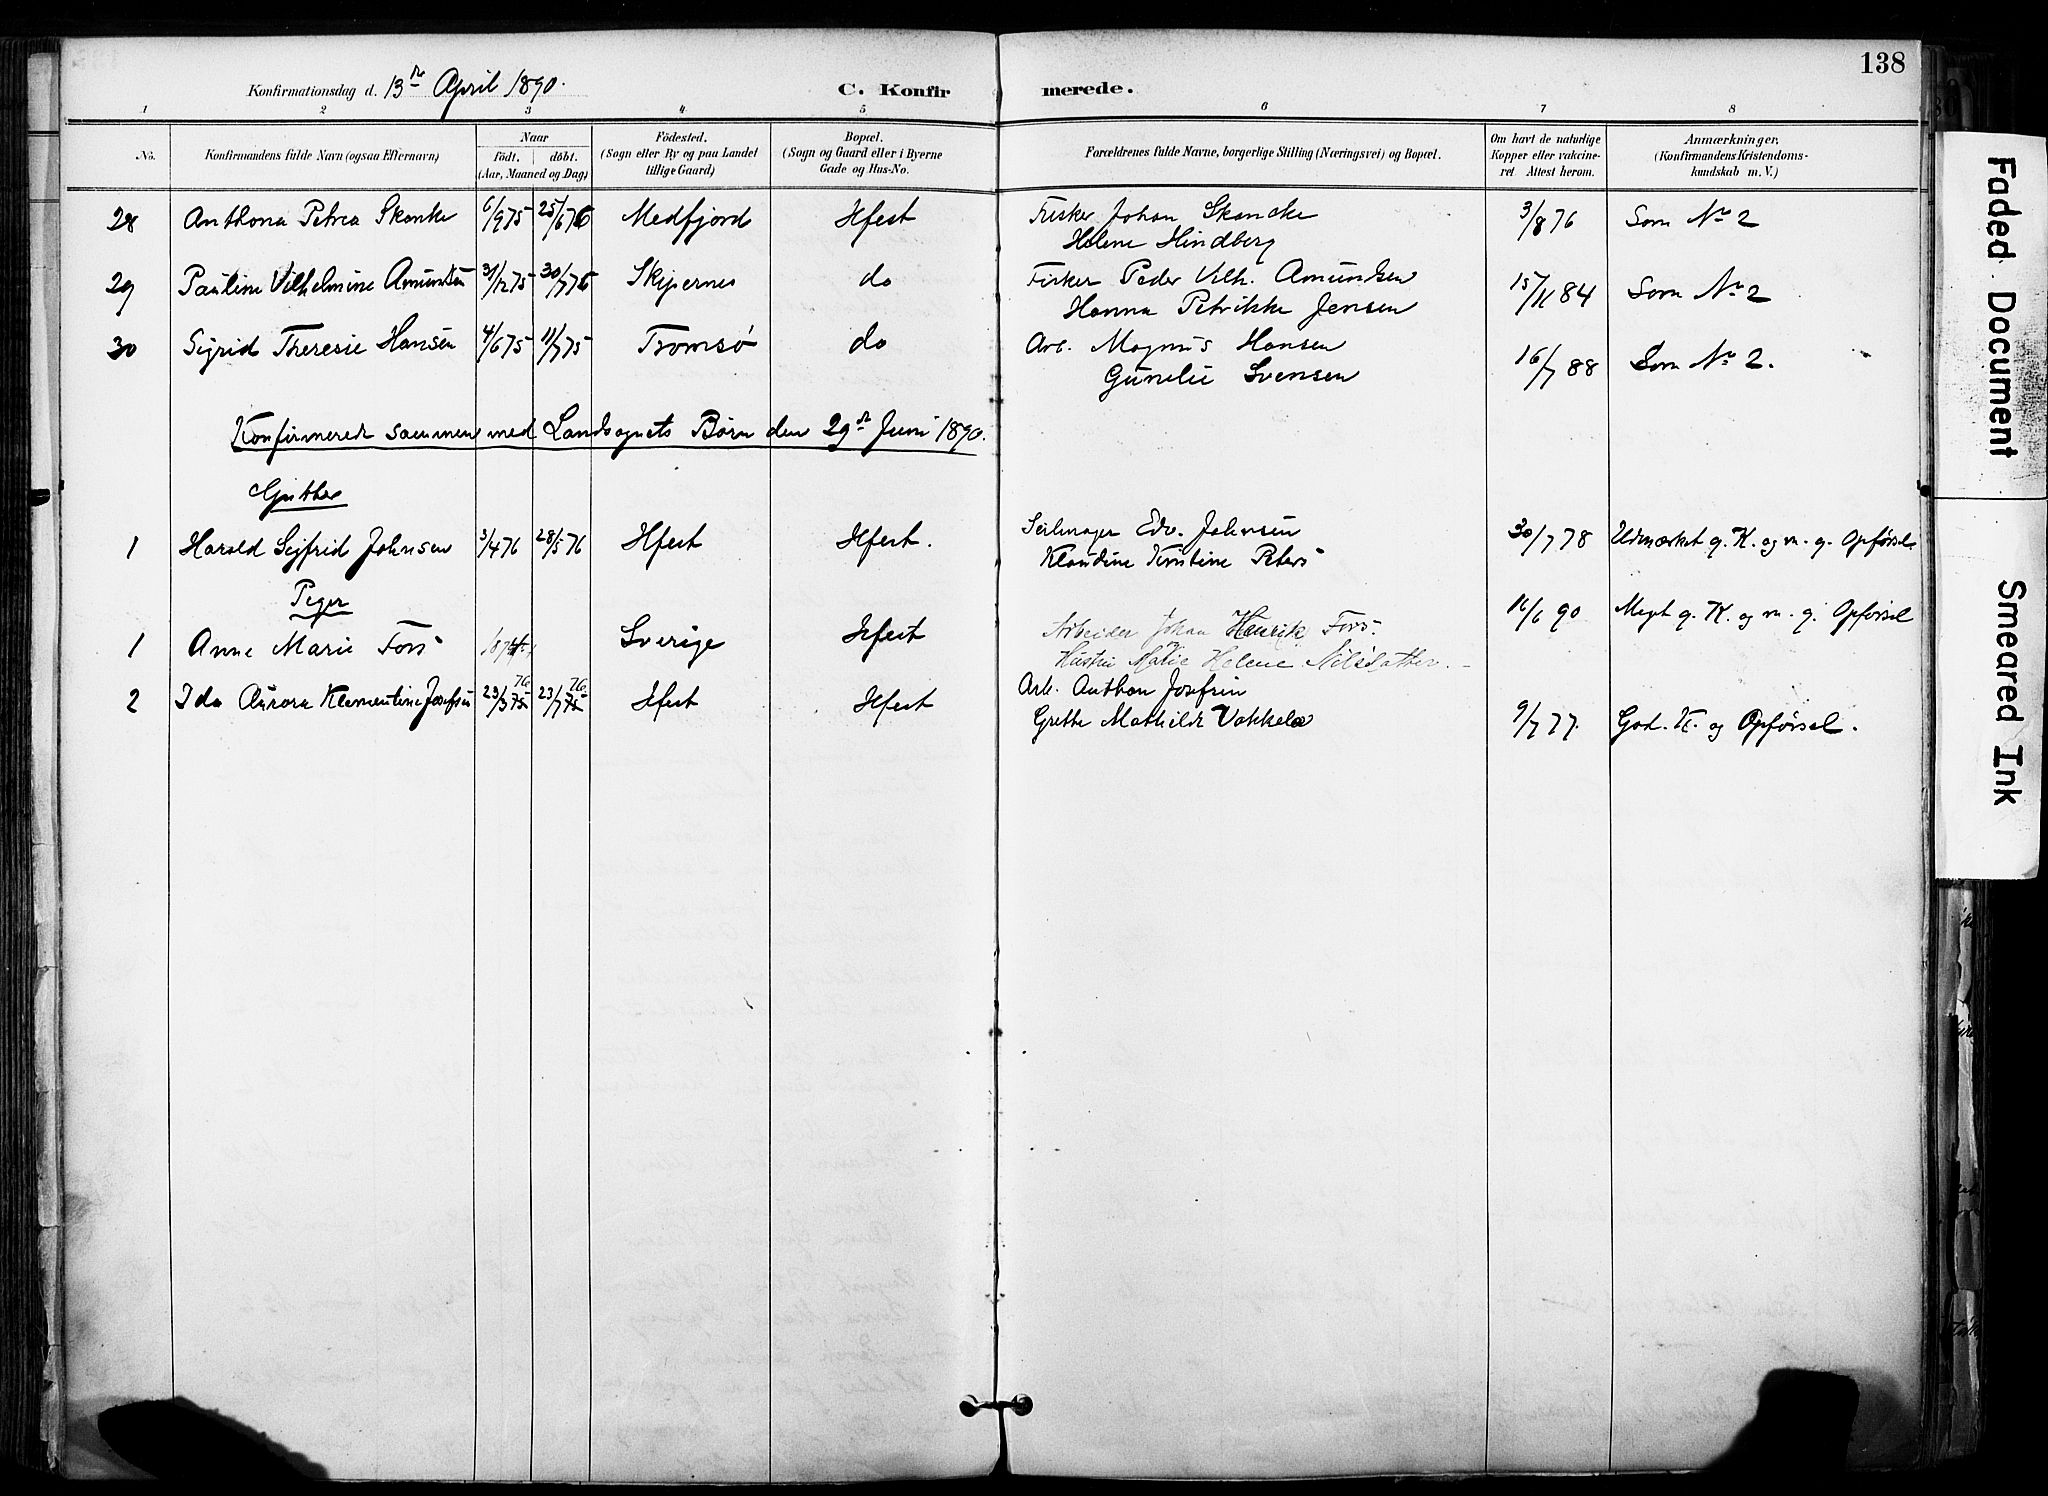 138
Konfirmationsdag d. 13de April 1890.
C. Konfirmerede.
1 2 3 4 5 6 7 8
No. Konfirmandens fulde Navn (ogsaa Efternavn) Naar födt. döbt. (Aar, Maaned og Dag) Födested. (Sogn eller By og paa Landet tillige Gaard) Bopæl. (Sogn og Gaard eller i Byerne Gade og Hus-No. Forældrenes fulde Navne, borgerlige Stilling (Næringsvei) og Bopæl. Om havt de naturlige Kopper eller vakcineret Attest herom. Anmærkninger. (Konfirmandens Kristendomskundskab m. V.)
28 Anthona Petrea Skanke 6/9 75 25/6 76 Medfjord Hfest Fisker Johan Skancke 3/8 76 Som No 2
Helene Hindberg
29 Pauline Vilhelmine Amundsen 31/12 75 30/7 76 Skjernes do Fisker Peder Vilh. Amundsen 15/11 84 Som No 2
Hanna Petrikke Jensen
30 Sigrid Theresie Hansen 4/6 75 11/7 75 Tromsø do Arb. Magnus Hansen 16/7 88 Som No 2.
Gunelie Svensen
Konfirmerede sammen med Landsognets Børn den 29de Juni 1890.
Gutter
1 Harald Sigfrid Johnsen 3/4 76 28/5 76 Hfest Hfest. Seilmager Edv. Johnsen 30/7 78 Udmærket g. K. og m. g. Opførsel.
Klaudine Kristine Peters
Piger
1 Anne Marie Fors 1874 Sverige Hfest Arbeider Johan Henrik Fors. 16/6 90 Meget g. K. og m. g. Opførsel
Hustru Marie Helene Nilsdatter.
2 Ida Aurora Klementine Josefsen 23/3 75 76 23/7 75 76 Hfest Hfest Arb. Anthon Josefsen
Grethe Mathilde Vakkela 9/7 77. God. K. og Opførsel.
Faded Document
Smeared Ink